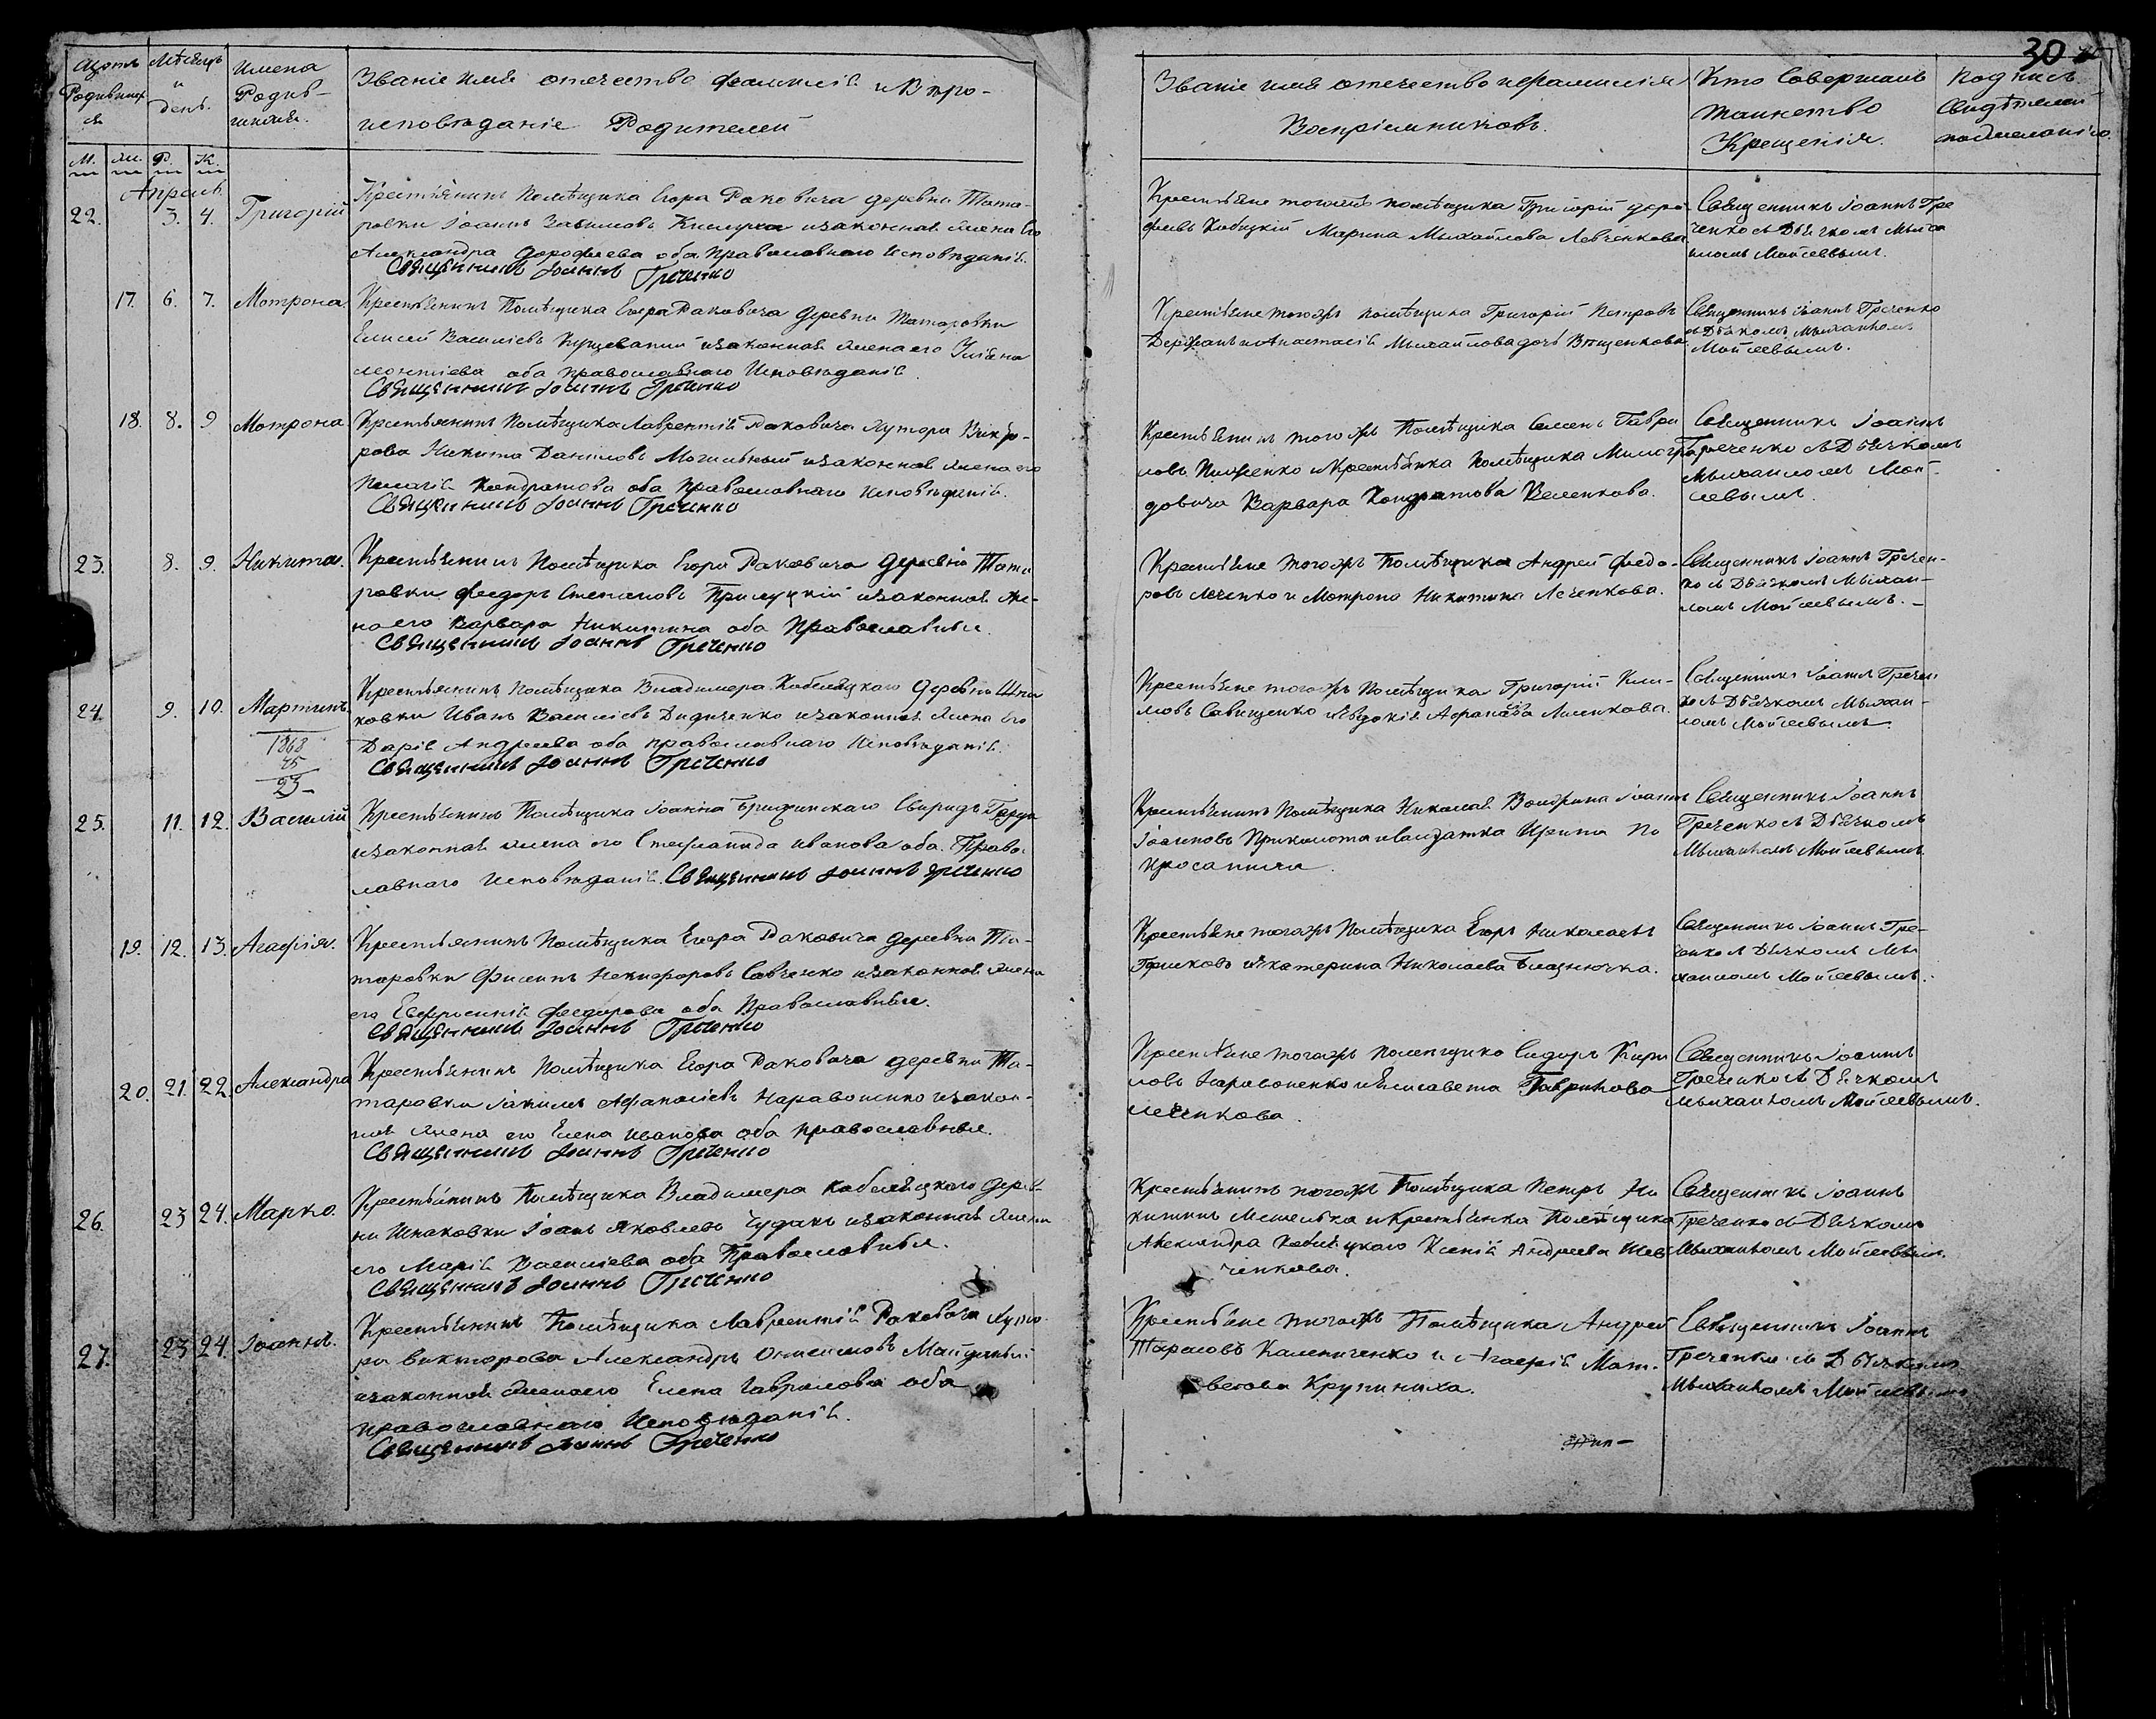 30
Щотъ Родившихся
Мѣсяцъ и день
Имена Родившихся.
Званіе имя отечество фамилія и Вѣроисповѣданіе Родителей
Званіе имя отечество и фамилія Воспріемниковъ.
Кто Совершалъ таинство Крещенія.
Подпись Свидѣтелей
М. Р. К.
Апрель
22. 3. 4. Григорій
Крестьянинъ Помѣщика Егора Раковича деревни Тата-
ровки Іоаннъ изаконная жена Его
Александра Дорофеева оба Православнаго Исповѣданія.
Священникъ Іоаннъ Греченко
Крестьяне тогожъ помѣщика Григорій Доро-
феевъ Марина Михайлова Левченкова
Священникъ Іоаннъ Гре
ченко съ Дьячкомъ Михаи
ломъ Мойсеевымъ.
17. 6. 7. Мотрона.
Крестьянинъ Помѣщика Егора Раковича деревни Татаровки
Елисей Василіевъ изаконная жена его Уліяна
Леонтіева оба православнаго Исповѣданія.
Священникъ Іоаннъ Греченко
Крестьяне тогожъ помѣщика Григорій Петровъ
Держанъ и Анастасія Михайлова дочь
Священникъ Іоаннъ Греченко
съ Дьячкомъ Михаиломъ
Мойсеевымъ.
18. 8. 9 Мотрона.
Крестьянинъ Помѣщика Лаврентія Раковича Хутора Викто-
рова Никита Даниловъ Могильный изаконная жена его
Пелагія Кондратова оба Православнаго Исповѣданія.
Священникъ Іоаннъ Греченко
Крестьянинъ тогожъ Помѣщика Семенъ Гаври
ловъ и Крестьянка Помѣщика Милогра
довича Варвара Кондратова
Священникъ Іоаннъ
Греченко съ Дьячкомъ
Михаиломъ Мой-
сеевымъ.
23. 8. 9. Никита.
Крестьянинъ Помѣщика Егора Раковича деревни Тата
ровки Феодоръ Степановъ Прилуцкій изаконная же-
на его Варвара Никитина оба Православные.
Священникъ Іоаннъ Греченко
Крестьяне тогожъ Помѣщика Андрей Федо-
ровъ и Мотрона Никитина
Священникъ Іоаннъ Гречен-
ко съ Дьячкомъ Михаи-
ломъ Мойсеевымъ.
24. 9. 10. Мартинъ.
1868
45
23
Крестьянинъ Помѣщика Владимера Кобеляцкаго деревни Шпа
ковки Иванъ Василіевъ Дидиченко изаконная жена Его
Дарія Андреева оба православнаго Исповѣданія.
Священникъ Іоаннъ Греченко
Крестьяне тогожъ Помѣщика Григорій Кли-
мовъ Савищенко и Евдокія Афанасіева
Священникъ Іоаннъ Гречен
ко съ Дьячкомъ Михаи-
ломъ Мойсеевымъ.
25. 11. 12. Василій
Крестьянинъ Помѣщика Іоанна Свиридъ
изаконная жена его Стефанида Иванова оба Право-
славнаго Исповѣданія. Священникъ Іоаннъ Греченко
Крестьянинъ Помѣщика Николая Іоаннъ
Іоанновъ и Салдатка Ирина
Священникъ Іоаннъ
Греченко съ Дьячкомъ
Михаиломъ Мойсеевымъ.
19. 12. 13. Агафія.
Крестьянинъ Помѣщика Егора Раковича деревни Та-
таровки Филипъ Некифоровъ Савченко изаконная жена
его Евфросинія Феодорова оба Православные.
Священникъ Іоаннъ Греченко
Крестьяне тогожъ Помѣщика Егоръ Николаевъ
и Екатерина Николаева
Священникъ Іоаннъ Гре-
ченко съ Дьячкомъ Ми
хаиломъ Мойсеевымъ.
20. 21. 22. Александра
Крестьянинъ Помѣщика Егора Раковича деревни Та-
таровки Іакимъ Афанасіевъ изакон-
ная жена его Елена Иванова оба православные.
Священникъ Іоаннъ Греченко
Крестьяне тогожъ помѣщика Сидоръ Кири
ловъ и Елисавета Гаврилова
Священникъ Іоаннъ
Греченко съ Дьячкомъ
Михаиломъ Мойсеевымъ.
26. 23 24. Марко.
Крестьянинъ Помѣщика Владимера Кобеляцкаго дерев-
ни Шпаковки Іоанъ Яковлевъ Чуданъ изаконная жена
его Марія Василіева оба Православные.
Священникъ Іоаннъ Греченко
Крестьянинъ тогожъ Помѣщика Петръ Ни
китинъ и Крестьянка Помѣщика
Александра Кобеляцкаго Ксенія Андреева Шев
ченкова.
Священникъ Іоаннъ
Греченко съ Дьячкомъ
Михаиломъ Мойсеевымъ.
27. 23 24. Іоаннъ.
Крестьянинъ Помѣщика Лаврентія Раковича Хуто-
ра Викторова Александръ Онисимовъ
изаконная жена его Елена Гаврилова оба
православнаго Исповѣданія.
Священникъ Іоаннъ Греченко
Крестьяне тогожъ Помѣщика Андрей
Тарасовъ Калениченко и Агафія Мат-
веева Крупиниха.
Священникъ Іоаннъ
Греченко съ Дьячкомъ
Михаиломъ Мойсеевымъ